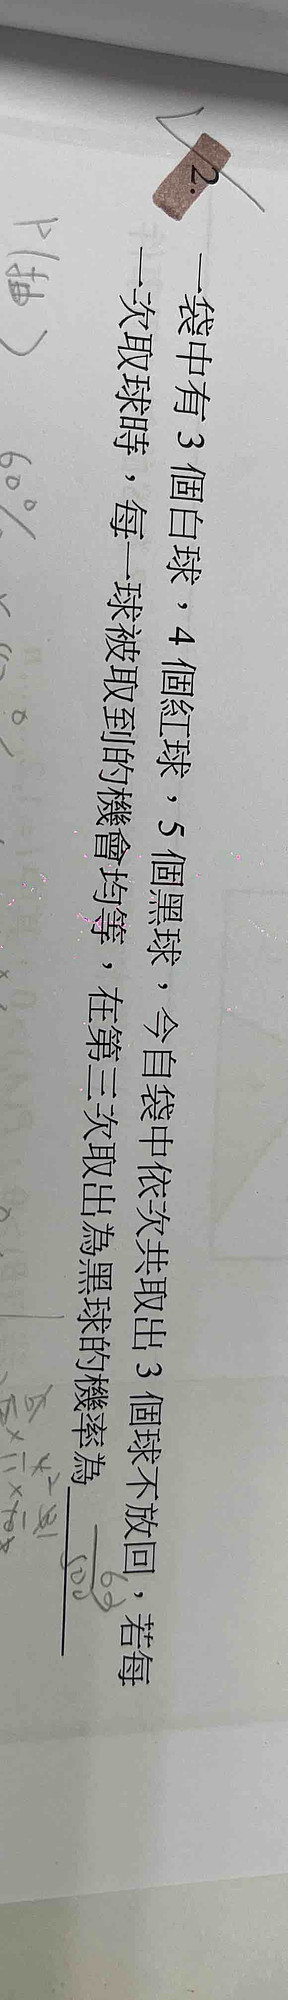 2. 一袋中有 3 個白球，4 個紅球，5 個黑球，今自袋中依次共取出 3 個球不放回，若每
一次取球時，每一球被取到的機會均等，在第三次取出為黑球的機率為
P(抽)
60%